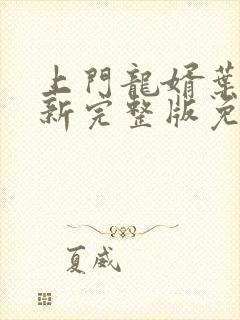 上門龍婿葉
新完整版免
夏威